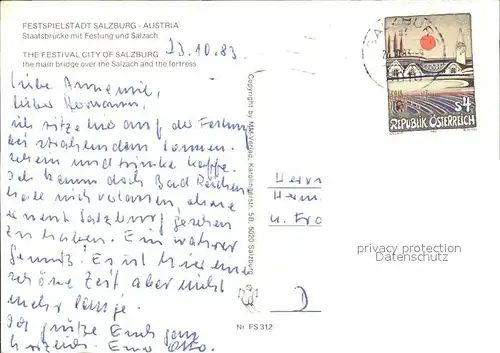 FESTSPIELSTADT SALZBURG - AUSTRIA
Staatsbrücke mit Festung und Salzach
THE FESTIVAL CITY OF SALZBURG
the main bridge over the Salzach and the fortress
23.10.83
Liebe Annemie,
lieber Hermann,
ich sitze hier auf der Festung
bei strahlendem Sonnen-
schein und trinke Kaffee.
Ich kann doch Bad Reichen
hall nicht verlassen, ohne
erneut Salzburg gesehen
zu haben. Ein wahrer
Genuß! Es ist hier eine
schöne Zeit aber nicht
mehr lange.
Ich grüße Euch ganz
herzlich. Euer Otto.
Copyright by NM-Verlag, Karolingerstr. 5B, 5020 Salzburg
Nr. FS 312
SALZBURG
S4
REPUBLIK ÖSTERREICH
Herrn
Herm
u. Fra
D
privacy protection
Datenschutz